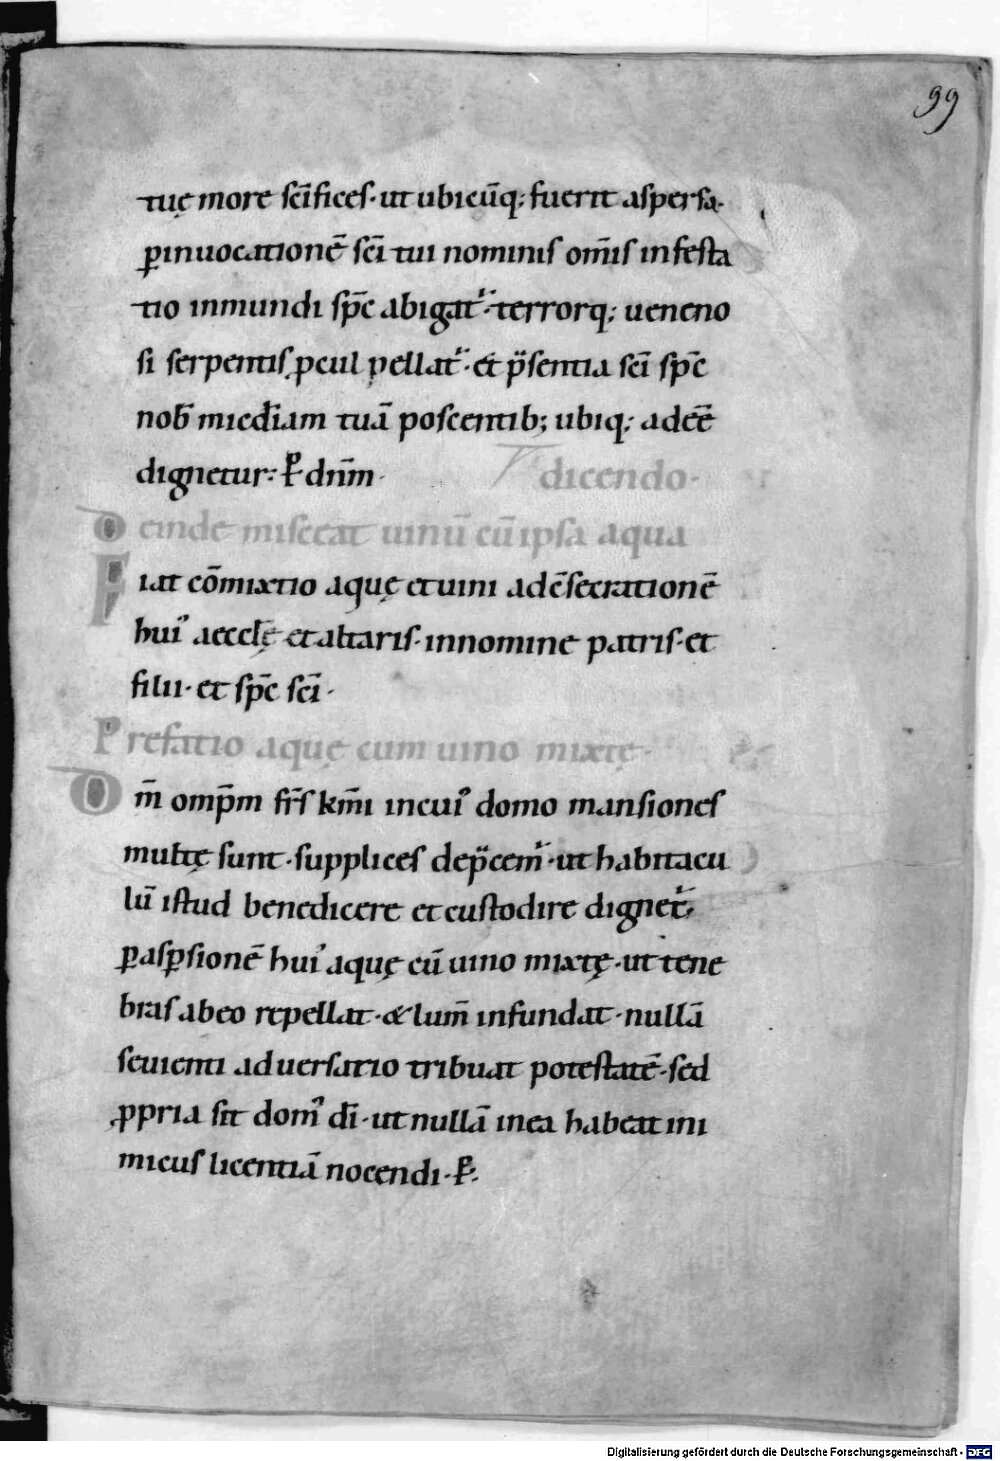 99
tuę more sc̄ifices· ut ubicūq; fuerit aspersa·
ꝑ inuocationē sc̄i tui nominis om̄is infesta
tio inmundi sp̄c abigat᷑· terrorq; ueneno
si serpentis ꝓcul pellat᷑· et p̄sentia sc̄i sp̄c
nob̄ mic̄diam tuā poscentib; ubiq; adeē
dignetur: P̄ dn̄m·
dicendo·
Deinde misceat uinū cū ipsa aqua
Fiat cōmixtio aquę et uini ad cn̄secrationē
hui᾽ aecclę̄ et altaris· in nomine patris· et
filii· et sp̄c sc̄i·
Prefatio aquę cum uino mixtę·
Dm̄ omp̄m fr̄s km̄i in cui᾽ domo mansiones
multę sunt· supplices dep̄cem᷑· ut habitacu
lū istud benedicere et custodire dignet᷑
ꝑ asꝑsionē hui᾽ aquę cū uino mixtę· ut tene
bras ab eo repellat· & lum̄ infundat· nullā
seuienti aduersario tribuat potestatē· sed
ꝓpria sit dom᾽ dī· ut nullā in ea habeat ini
micus licentiā nocendi· P̄·
Digitalisierung gefördert durch die Deutsche Forschungsgemeinschaft - DFG